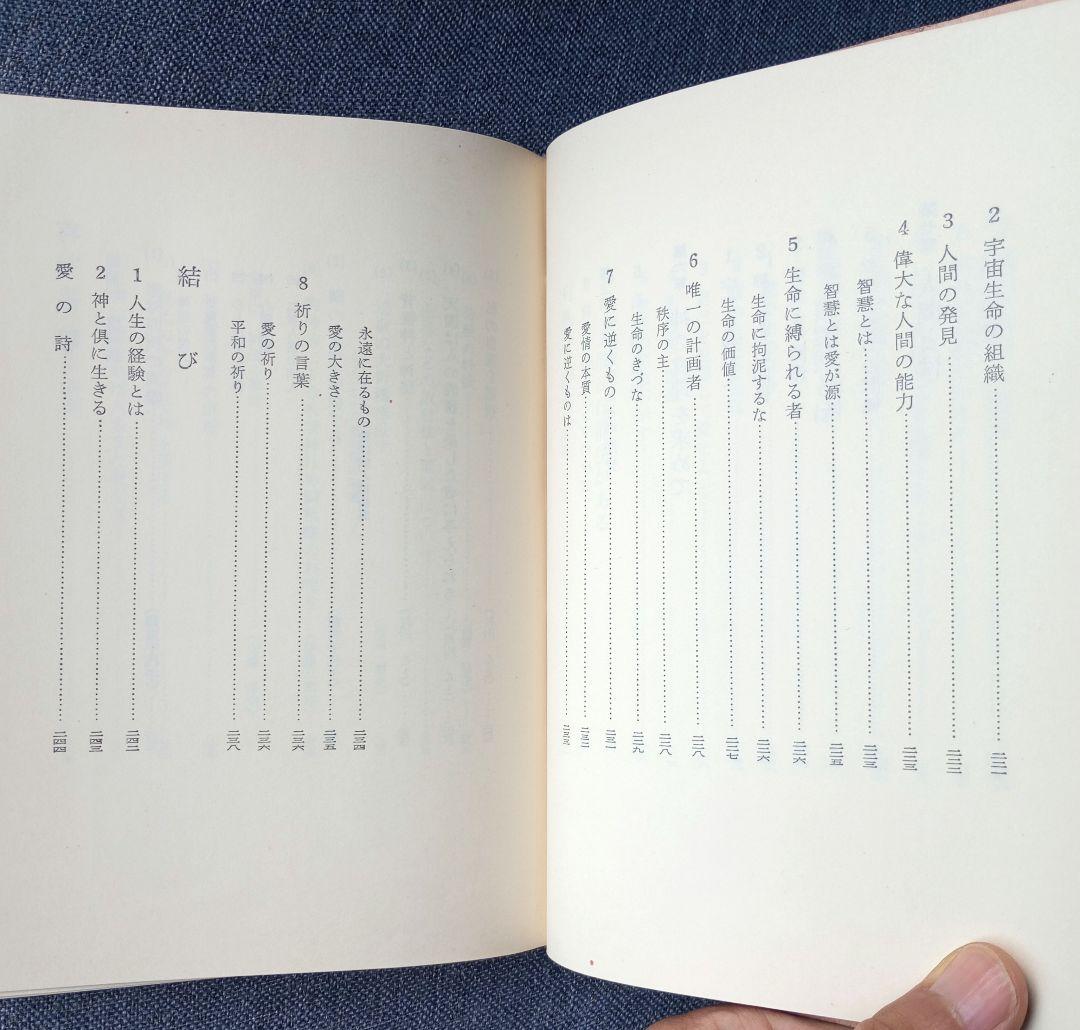 2 宇宙生命の組織……二二一
3 人間の発見……二二二
4 偉大な人間の能力……二二三
智慧とは……二二三
智慧とは愛が源……二二五
5 生命に縛られる者……二二六
生命に拘泥するな……二二六
生命の価値……二二七
6 唯一の計画者……二二八
秩序の主……二二八
生命のきづな……二二九
7 愛に逆くもの……二三一
愛情の本質……二三二
愛に逆くものは……二三三
永遠に在るもの……二三四
愛の大きさ……二三五
8 祈りの言葉……二三六
愛の祈り……二三六
平和の祈り……二三八
結び
1 人生の経験とは……二四二
2 神と倶に生きる……二四三
愛の詩……二四四